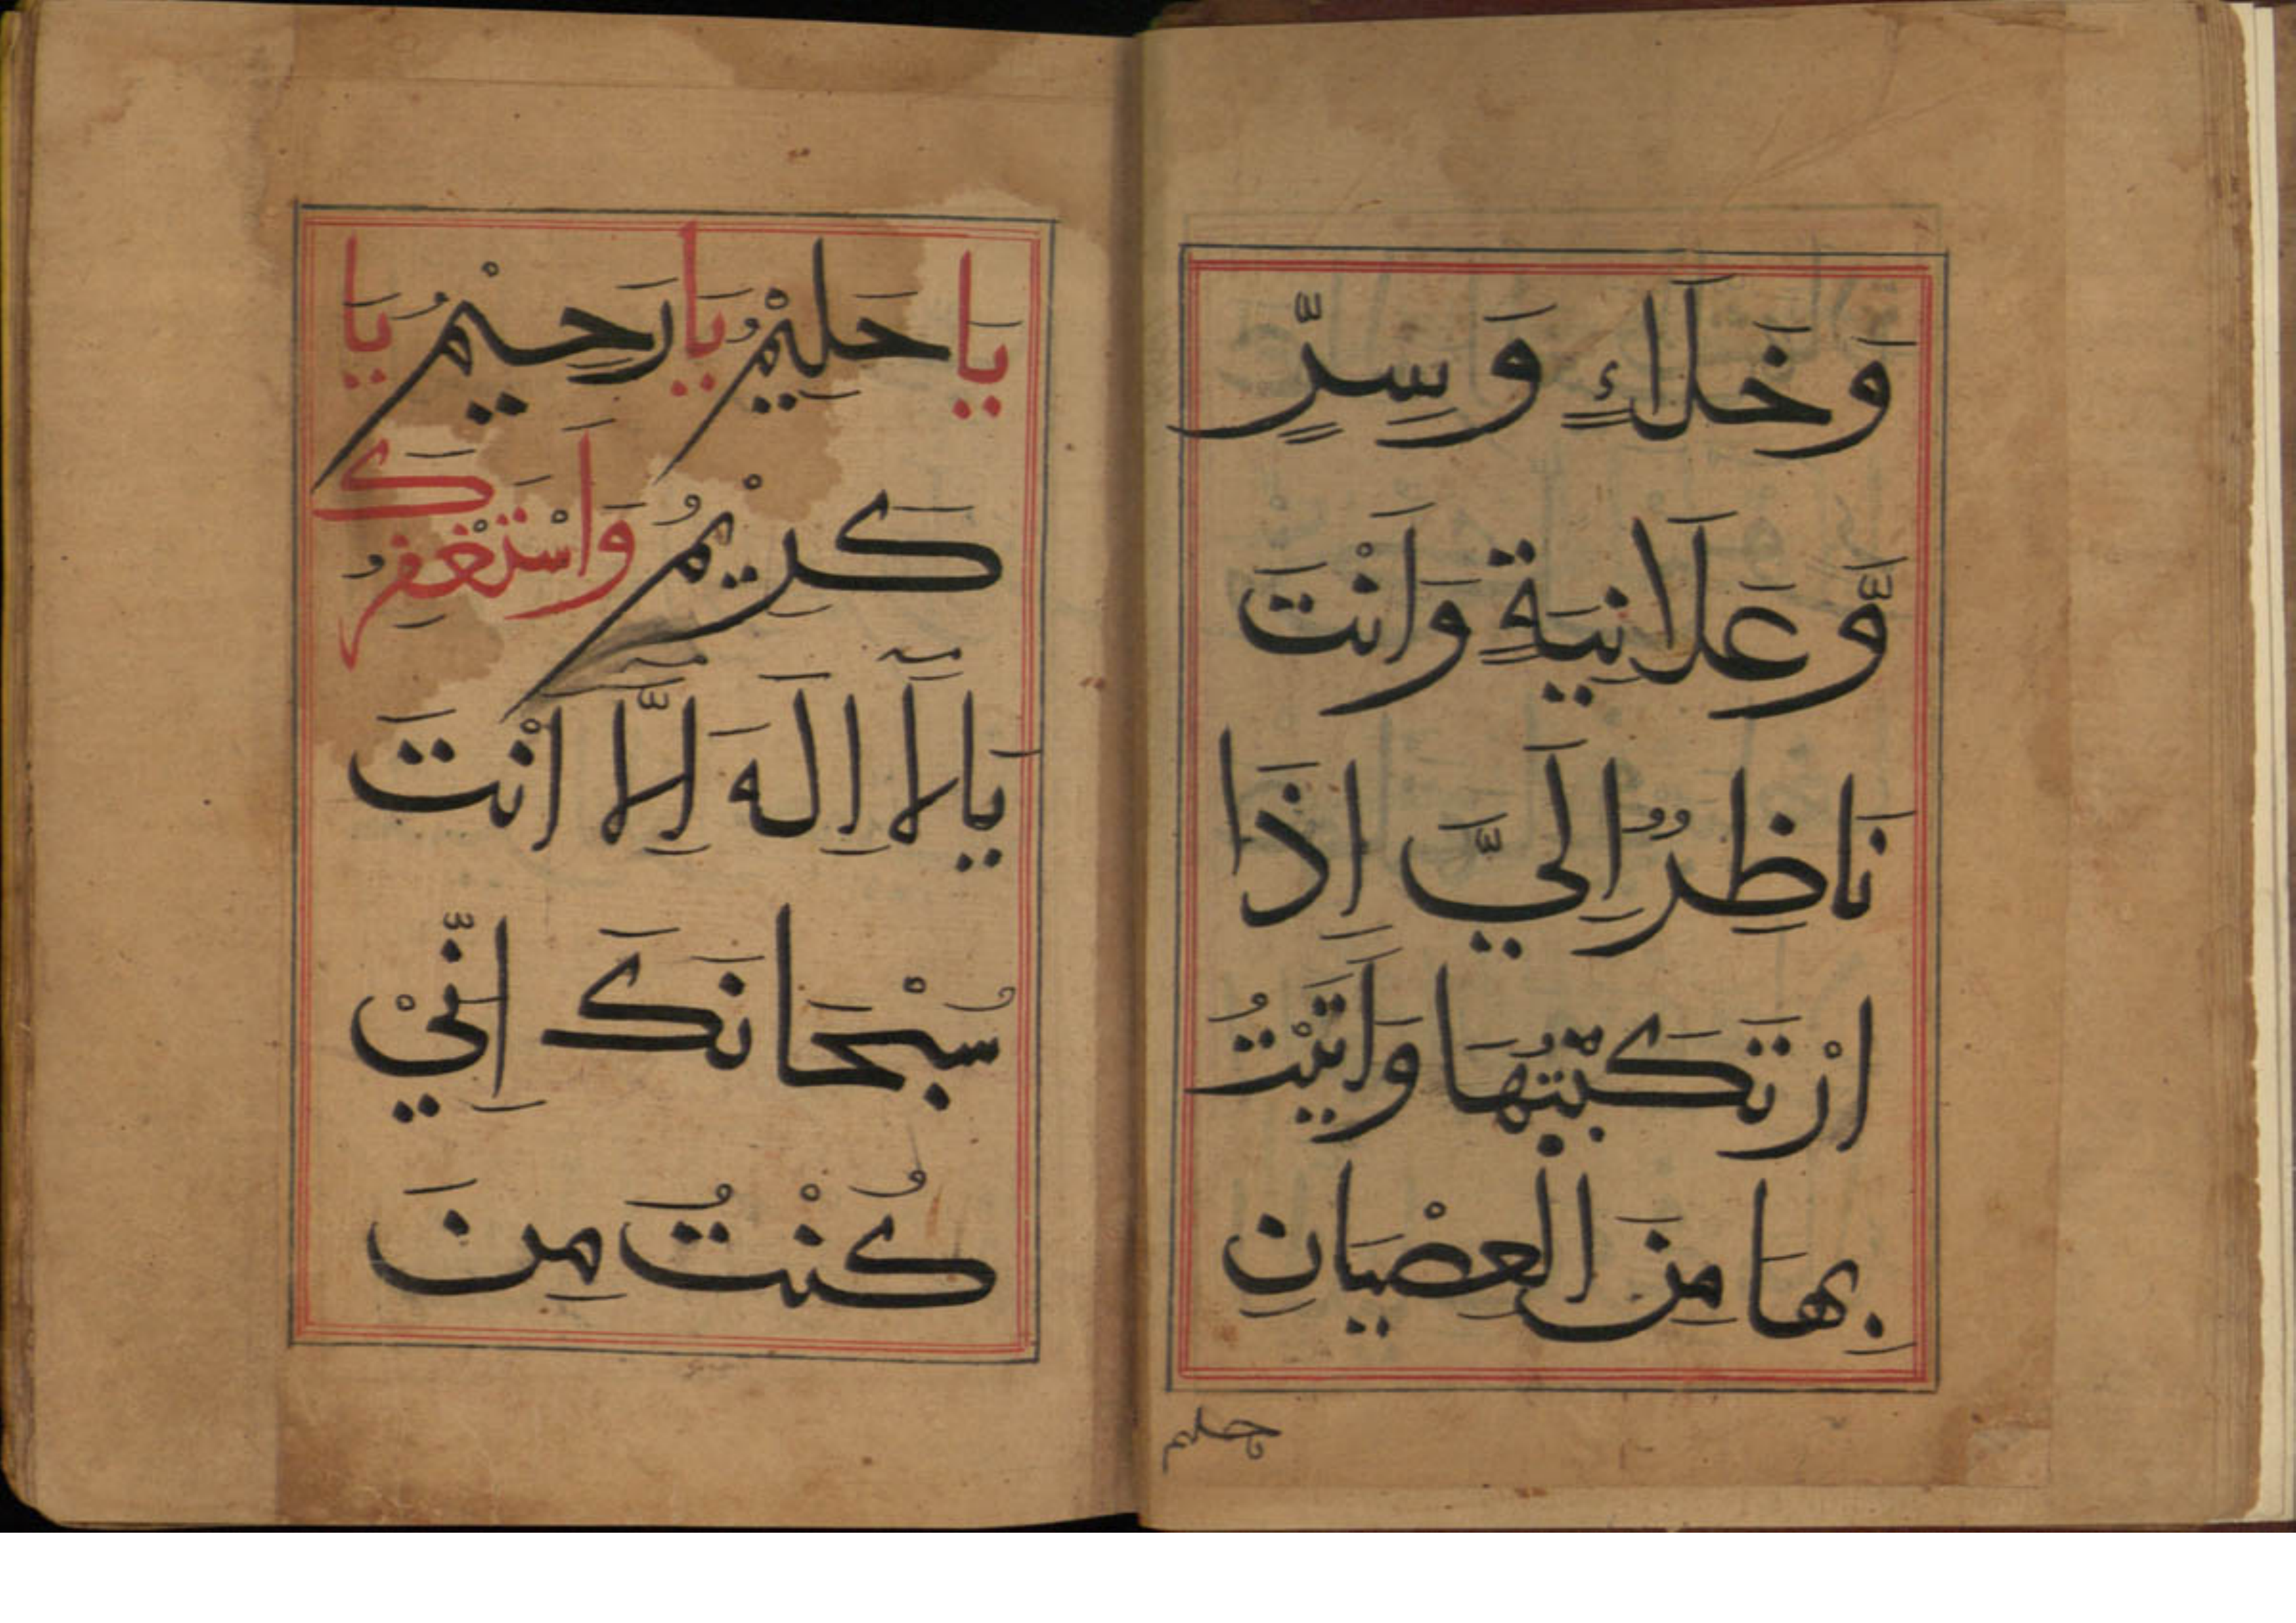 وَخَلَاءٍ وَسِرٍّ
وَّعَلَانِيَةٍ وَاَنْتَ
نَاظِرٌ اِلَيَّ اِذَا
ارْتَكَبْتُهَا وَاَتَيْتُ
بِهَا مِنَ الْعِصْيَانِ
حليم
يَا حَلِيْمُ يَا رَحِيْمُ يَا
كَرِيْمُ وَاَسْتَغْفِرُكَ
يَا لَآ اِلٰهَ اِلَّآ اَنْتَ
سُبْحَانَكَ اِنِّيْ
كُنْتُ مِنَ